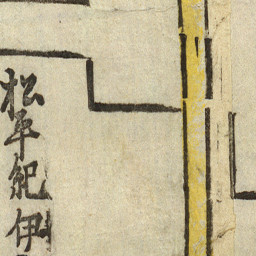 松平紀伊